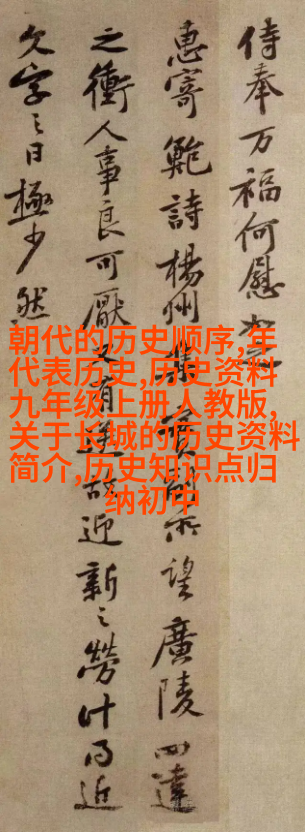 侍奉万福何慰如之
惠寄鲍詩楊州集
望廣陵四達
之衝人事良可厭又有迎
新之勞計日近
欠字之日極少然
朝代的历史顺序,年
代表历史,历史资料
九年级上册人教版,
关于长城的历史资料
简介,历史知识点归
纳初中